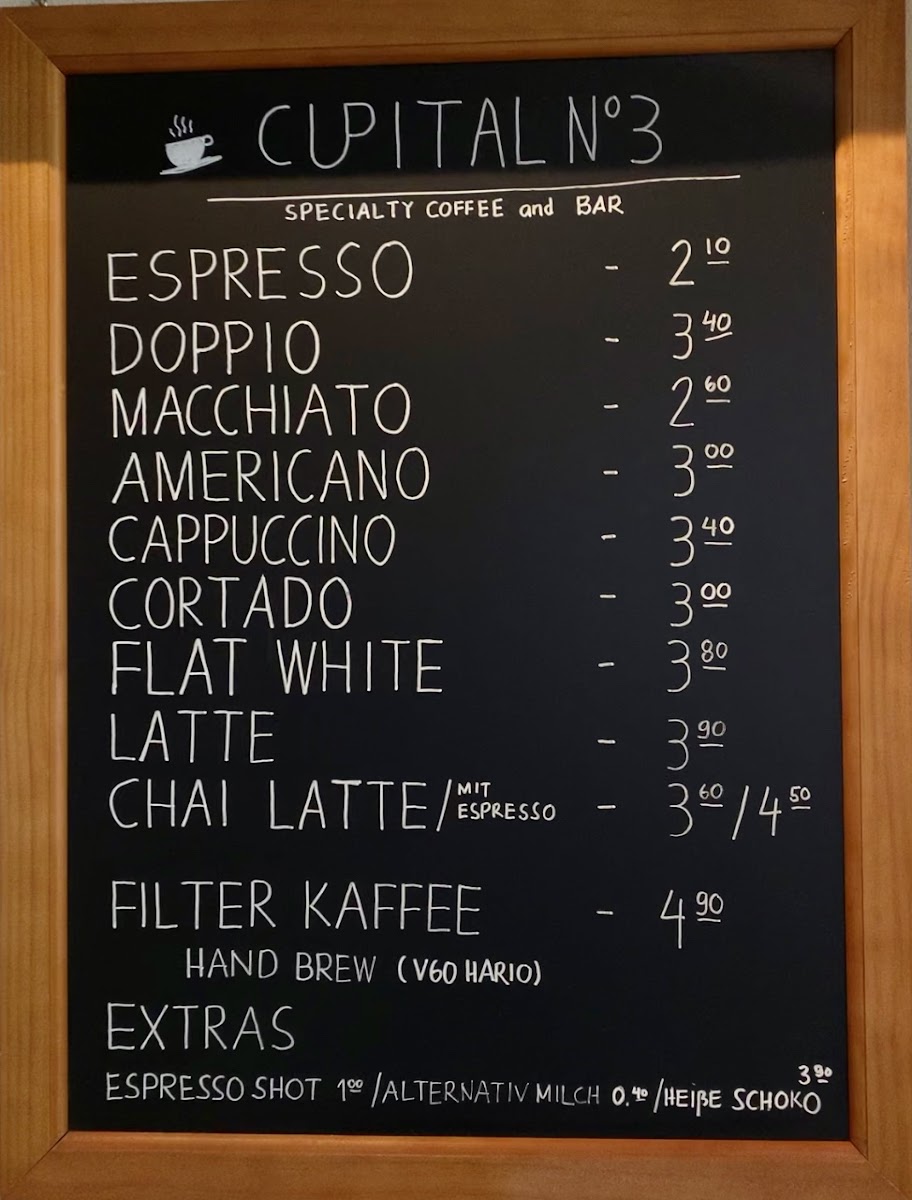 CUPITAL Nº3
SPECIALTY COFFEE and BAR
ESPRESSO - 2 10
DOPPIO - 3 40
MACCHIATO - 2 60
AMERICANO - 3 00
CAPPUCCINO - 3 40
CORTADO - 3 00
FLAT WHITE - 3 80
LATTE - 3 90
CHAI LATTE/MIT ESPRESSO - 3 60/4 50
FILTER KAFFEE - 4 90
HAND BREW (V60 HARIO)
EXTRAS
ESPRESSO SHOT 1 00/ALTERNATIV MILCH 0.40/HEIßE SCHOKO 3 90